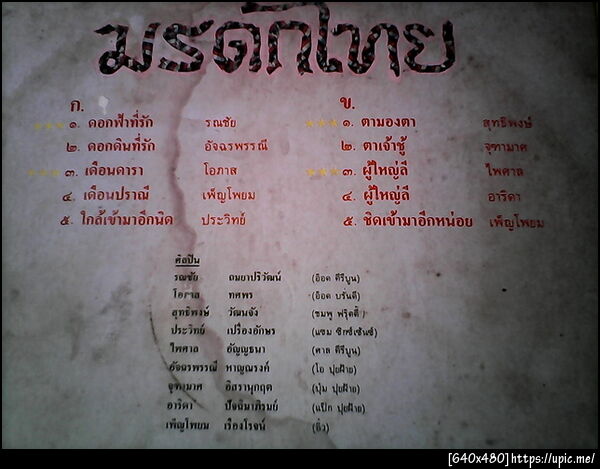 มรดกไทย
ก.
๑. ดอกฟ้าที่รัก รณชัย
๒. ดอกดินที่รัก อัจฉรพรรณี
๓. เดือนดารา โอภาส
๔. เดือนปราณี เพ็ญโพยม
๕. ใกล้เข้ามาอีกนิด ประวิทย์
ข.
๑. ตามองตา สุทธิพงษ์
๒. ตาเจ้าชู้ จุฑามาศ
๓. ผู้ใหญ่ลี ไพศาล
๔. ผู้ใหญ่ลี อาริดา
๕. ชิดเข้ามาอีกหน่อย เพ็ญโพยม
ศิลปิน
รณชัย ถมยาปริวัฒน์ (อ๊อด คีรีบูน)
โอภาส ทศพร (อ๊อด บรั่นดี)
สุทธิพงษ์ วัฒนจัง (ชมพู ฟรุ๊ตตี้)
ประวิทย์ เปรื่องอักษร (แซม ซิกซ์เซ้นซ์)
ไพศาล อัญญธนา (ศาล คีรีบูน)
อัจฉรพรรณี หาญณรงค์ (โอ ปุยฝ้าย)
จุฑามาศ อิสรานุกฤต (บุ๋ม ปุยฝ้าย)
อาริดา ปัจฉิมาภิรมย์ (แป๊ก ปุยฝ้าย)
เพ็ญโพยม เรืองโรจน์ (ติ๋ว)
[640x480]https://upic.me/